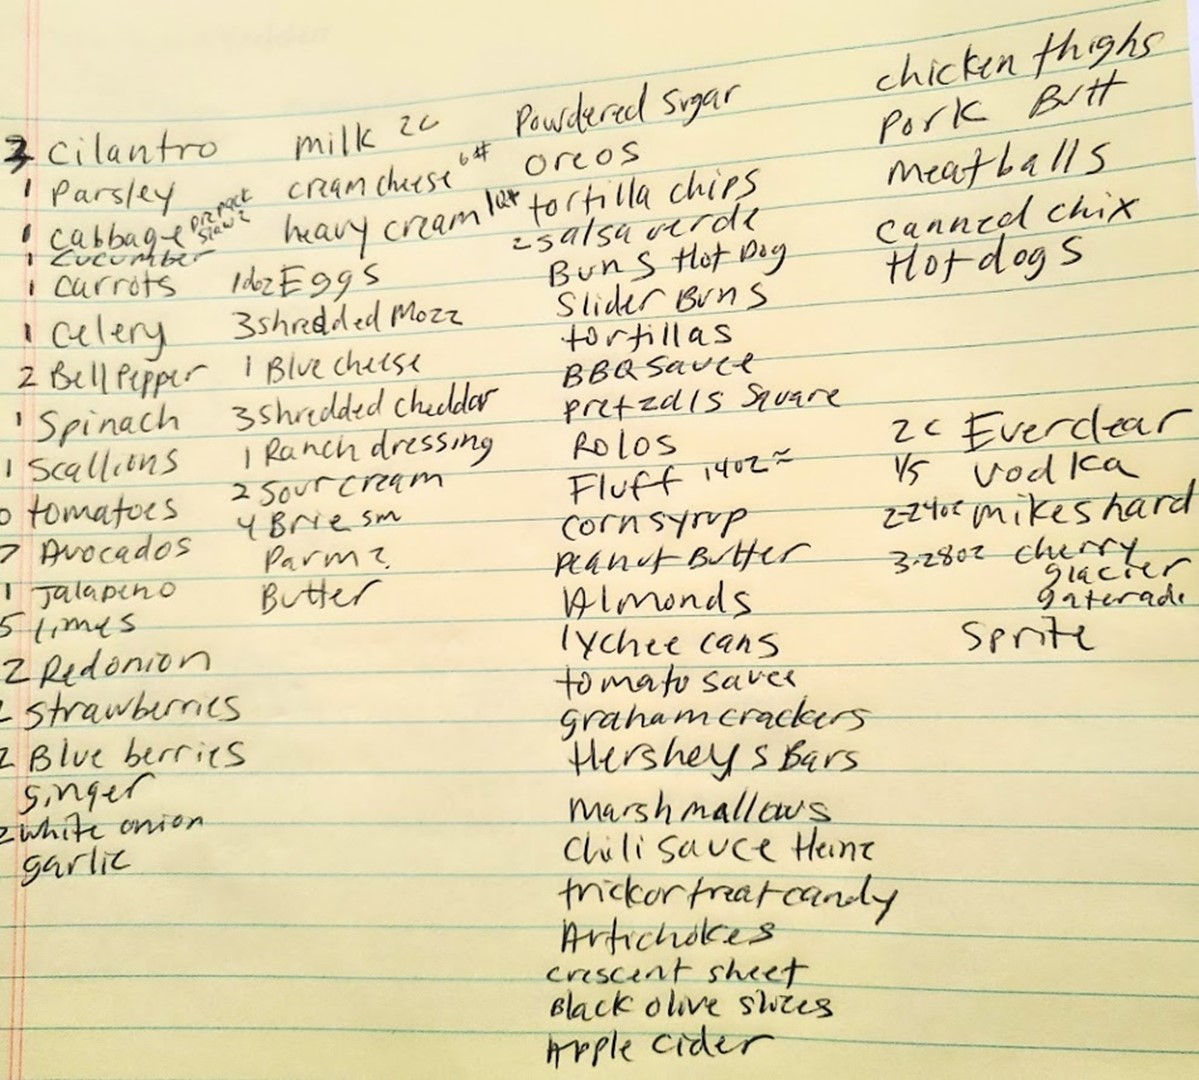 3 Cilantro
1 Parsley
1 cabbage prepack slaw?
1 cucumber
1 carrots
1 Celery
2 Bell Pepper
1 Spinach
1 Scallions
tomatoes
Avocados
1 Jalapeno
5 limes
2 Red onion
Strawberries
2 Blue berries
ginger
2 white onion
garlic
milk 2c
cream cheese 6#
heavy cream
1doz Eggs
3 shredded Mozz
1 Blue cheese
3 shredded cheddar
1 Ranch dressing
2 sour cream
4 Brie sm
Parm?
Butter
Powdered Sugar
oreos
tortilla chips
2 salsa verde
Buns Hot Dog
Slider Buns
tortillas
BBQ sauce
pretzels Square
Rolos
Fluff 14oz
corn syrup
Peanut Butter
Almonds
lychee cans
tomato sauce
graham crackers
Hershey s Bars
Marshmallows
Chili sauce Heinz
trick or treat candy
Artichokes
crescent sheet
Black olive slices
Apple Cider
chicken thighs
Pork Butt
Meatballs
canned chix
Hot dogs
2c Everclear
1/5 vodka
2-24oz mikes hard
3-28oz cherry
glacier
gaterade
Sprite